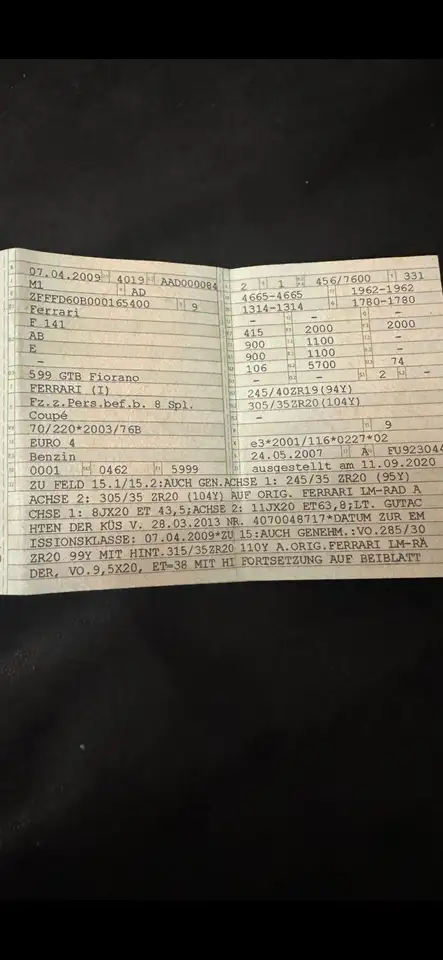 07.04.2009 4019 AAD000084
M1 AD
ZFFFD60B000165400 9
Ferrari
F 141
AB
E
–
599 GTB Fiorano
FERRARI (I)
Fz.z.Pers.bef.b. 8 Spl.
Coupé
70/220*2003/76B
EURO 4
Benzin
0001 0462 5999
2 1 456/7600 331
4665-4665 1962-1962
1314-1314 1780-1780
– –
415 2000 2000
900 1100 –
900 1100 –
106 5700 74
– – 2 –
245/40ZR19(94Y)
305/35ZR20(104Y)
–
– 9
e3*2001/116*0227*02
24.05.2007 A FU923044
ausgestellt am 11.09.2020
ZU FELD 15.1/15.2:AUCH GEN.ACHSE 1: 245/35 ZR20 (95Y)
ACHSE 2: 305/35 ZR20 (104Y) AUF ORIG. FERRARI LM-RAD A
CHSE 1: 8JX20 ET 43,5;ACHSE 2: 11JX20 ET63,8;LT. GUTAC
HTEN DER KÜS V. 28.03.2013 NR. 4070048717*DATUM ZUR EM
ISSIONSKLASSE: 07.04.2009*ZU 15:AUCH GENEHM.:VO.285/30
ZR20 99Y MIT HINT.315/35ZR20 110Y A.ORIG.FERRARI LM-RÄ
DER, VO.9,5X20, ET=38 MIT HI FORTSETZUNG AUF BEIBLATT